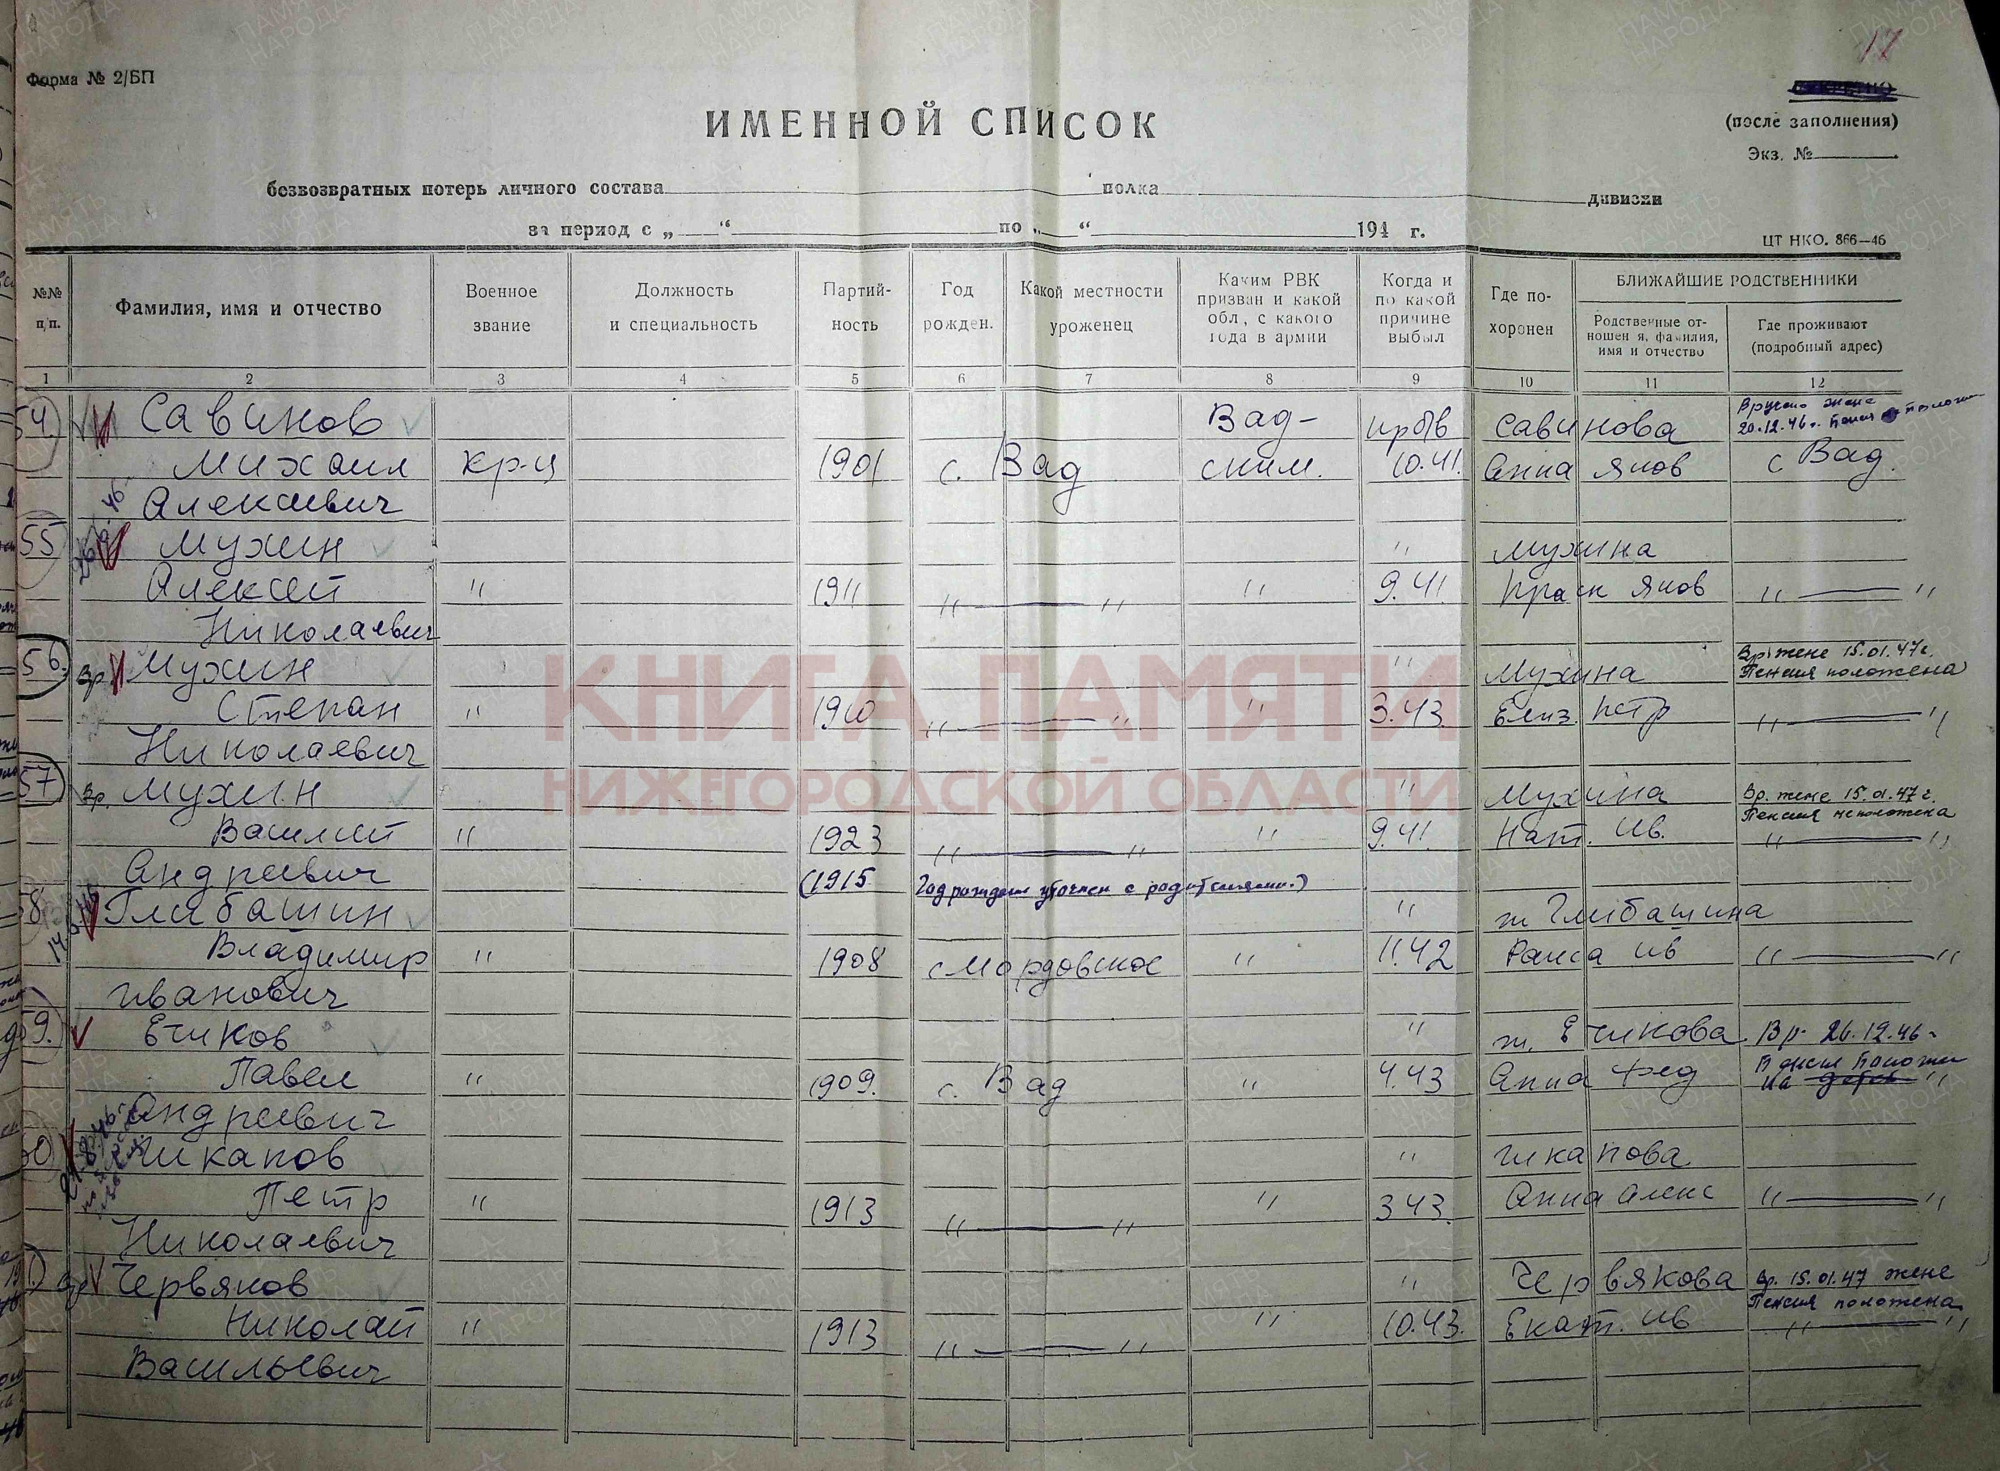 17
Форма № 2/БП
ИМЕННОЙ СПИСОК
(после заполнения)
Экз. №
безвозвратных потерь личного состава полка дивизии
за период с „ “ по „ “ 194 г.
ЦТ НКО. 866—46
№№ п/п.
Фамилия, имя и отчество
Военное звание
Должность и специальность
Партий-ность
Год рожден.
Какой местности уроженец
Каким РВК призван и какой обл., с какого года в армии
Когда и по какой причине выбыл
Где по-хоронен
БЛИЖАЙШИЕ РОДСТВЕННИКИ
Родственные от-ношен я, фамилия, имя и отчество
Где проживают (подробный адрес)
1 2 3 4 5 6 7 8 9 10 11 12
54. Савинов Вад- пр б/в Савинова Вручено жене
20.12.46 г.
Михаил кр-ц 1901 с. Вад ским. 10.41. Анна Яков с Вад.
Алексеевич
55 Мухин " Мухина
Алексей " 1911 " — " " 9.41. Праск Яков " — "
Николаевич
56. Вр Мухин " Мухина Вр. жене 15.01.47 г.
Пенсия положена
Степан " 1910 " — " " 3.43. Елиз. Петр " — "
Николаевич
57 Вр. Мухин " Мухина Вр. жене 15.01.47 г.
Пенсия не положена
Василий " 1923 " — " " 9.41. Нат. Ив. " — "
Андреевич (1915 Год рождения уточнен с родителями.)
58 Глебашин " ж Глебашина
Владимир " 1908 с Мордовское " 11.42 Раиса Ив " — "
Иванович
59. Ечиков " ж. Ечикова Вр. 26.12.46 г
Павел " 1909. с. Вад " 4.43 Анна Фед на детей "
Андреевич
60 Чикапов " Чикапова
Петр " 1913 " — " " 3 43. Анна Алекс " — "
Николаевич
Вр Червяков " Червякова Вр. 15.01.47 жене
Пенсия положена
Николай " 1913 " — " " 10.43. Екат. Ив " — "
Васильевич
КНИГА ПАМЯТИ
НИЖЕГОРОДСКОЙ ОБЛАСТИ
ПАМЯТЬ НАРОДА